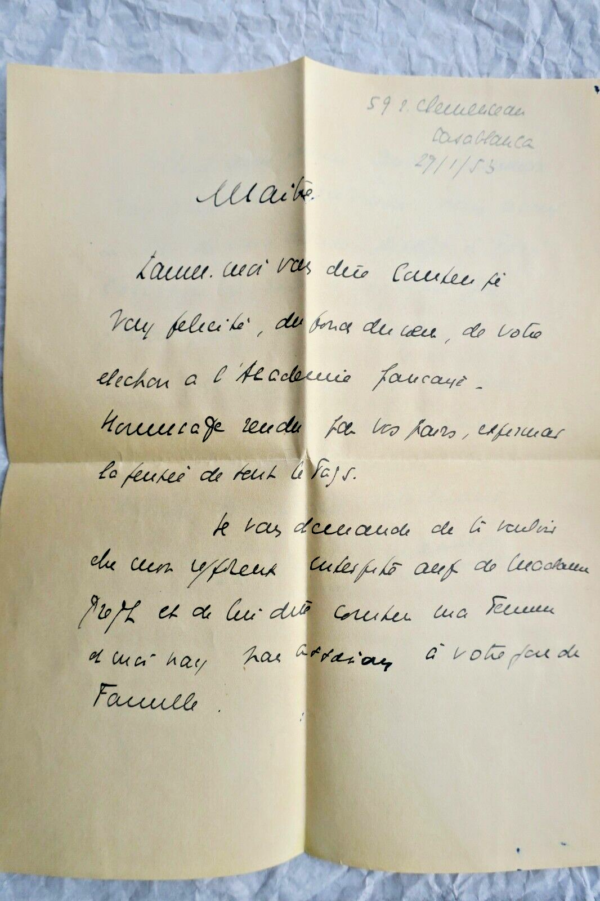 59 r. Clemenceau
Casablanca
29/1/53
Maitre.
Laissez-moi vous dire combien je
vous felicite, du fond du cœur, de votre
election a l'Academie française.
Hommage rendu par vos pairs, exprimant
la pensée de tout le Pays.
Je vous demande de bien vouloir
être mon interprète auprès de Madame
Gregh et de lui dire combien ma Femme
et moi nous nous associons à votre joie de
Famille.